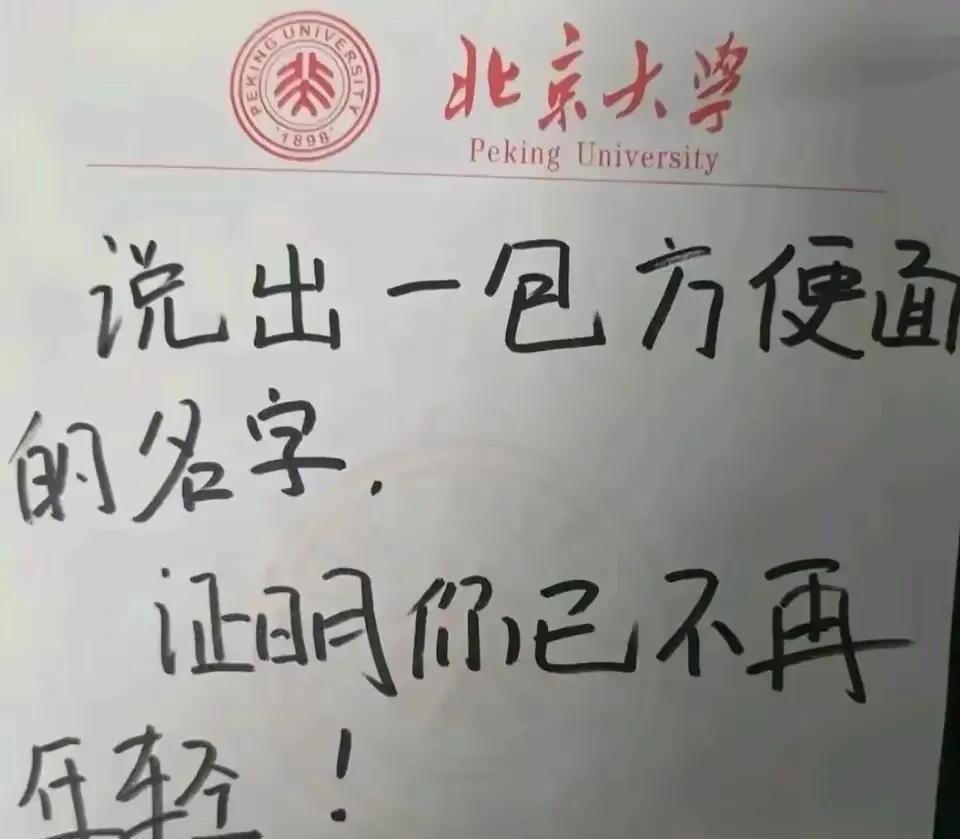 PEKING UNIVERSITY
1898
北京大学
Peking University
说出一包方便面
的名字.
证明你已不再
年轻!